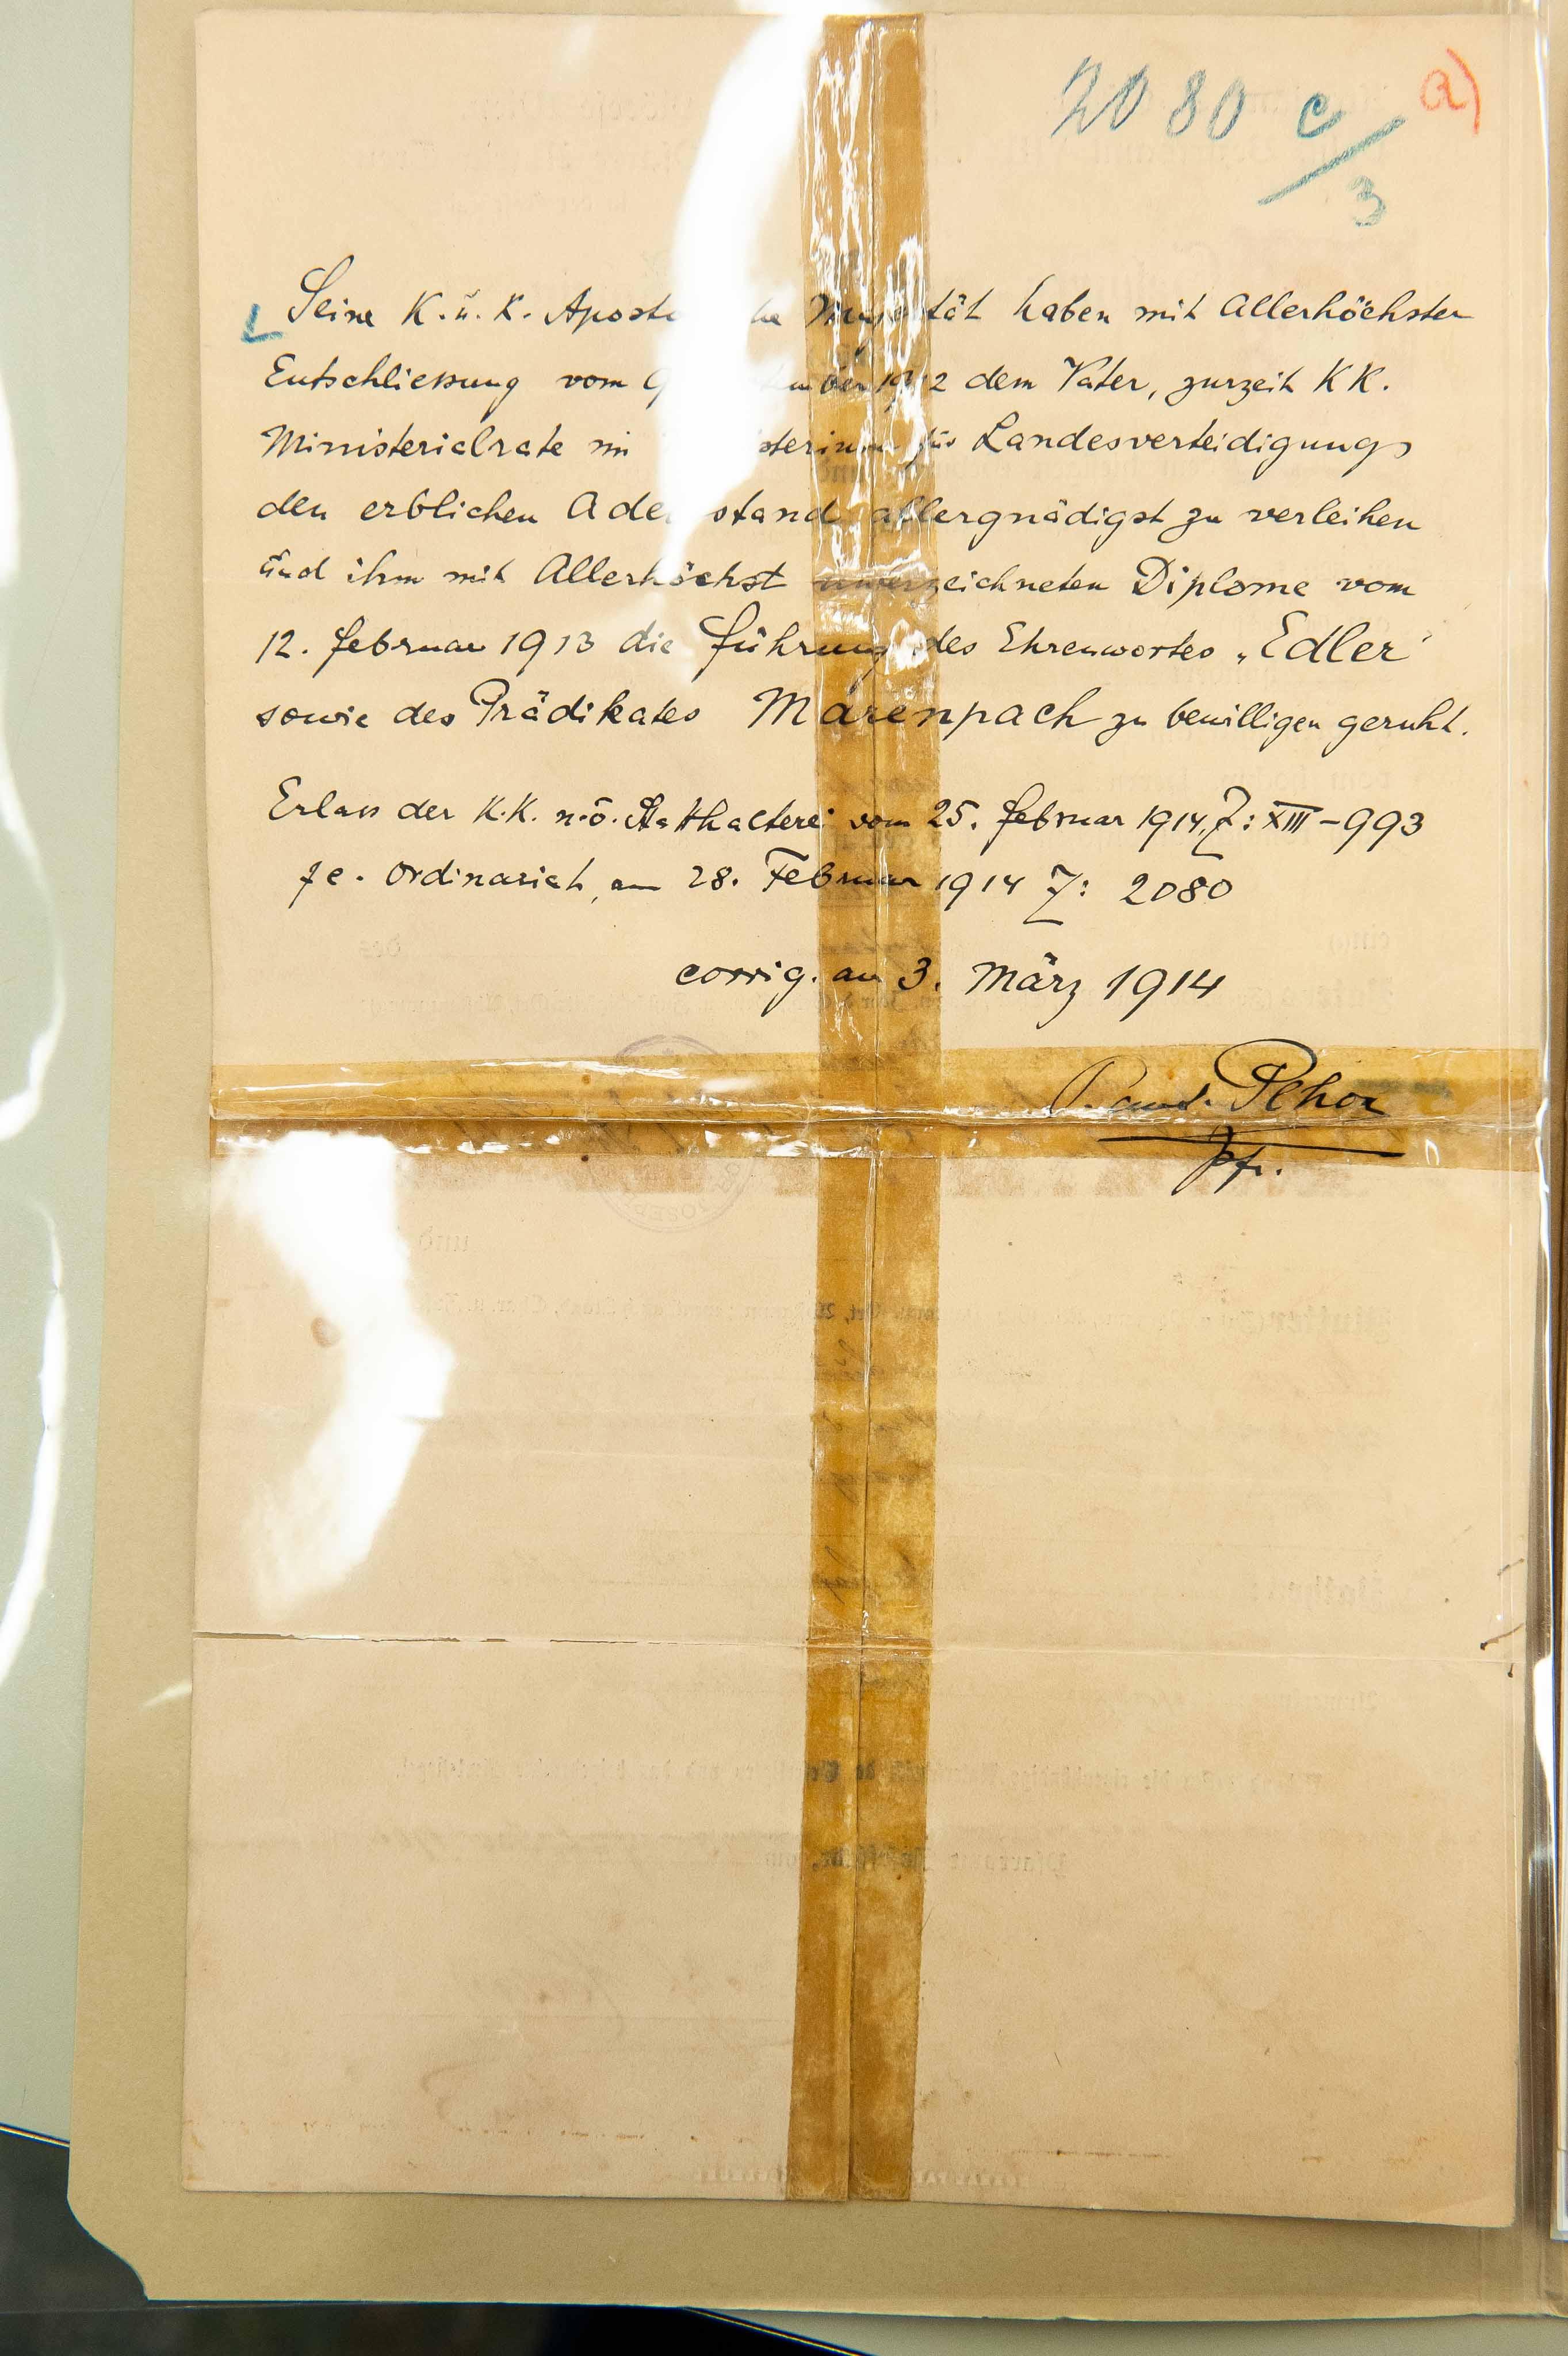 2080 c/3 a)
Seine K. u. K. Aposto he Majestät haben mit Allerhöchster
Entschliessung vom mber 1912 dem Vater, zurzeit KK.
Ministerialrate im sterium für Landesverteidigung
den erblichen Adelsstand allergnädigst zu verleihen
und ihm mit Allerhöchst unterzeichneten Diplome vom
12. Februar 1913 die Führung des Ehrenwortes „Edler"
sowie des Prädikates Marenpach zu bewilligen geruht.
Erlass der K.K. n.ö. Statthalterei vom 25. Februar 1914, Z: XIII-993
fe. Ordinariat, am 28. Februar 1914 Z: 2080
corrig. am 3. März 1914
Pfr.